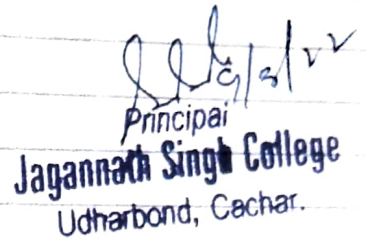 Principal
Jagannath Singh College
Udharbond, Cachar.